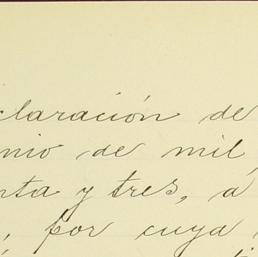 claración de
nio de mil
nta y tres, á
, por cuya